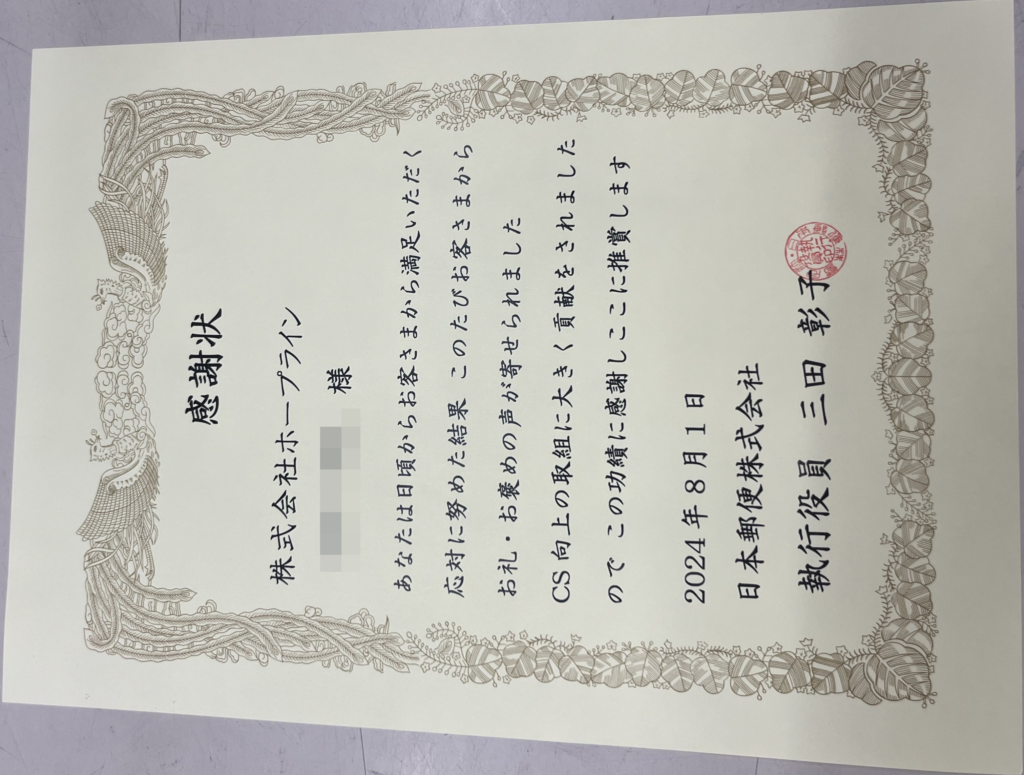 感謝状
株式会社ホープライン
様
あなたは日頃からお客さまから満足いただく
応対に努めた結果 このたびお客さまから
お礼・お褒めの声が寄せられました
CS向上の取組に大きく貢献をされました
ので この功績に感謝しここに推賞します
2024年8月1日
日本郵便株式会社
執行役員 三田 彰子